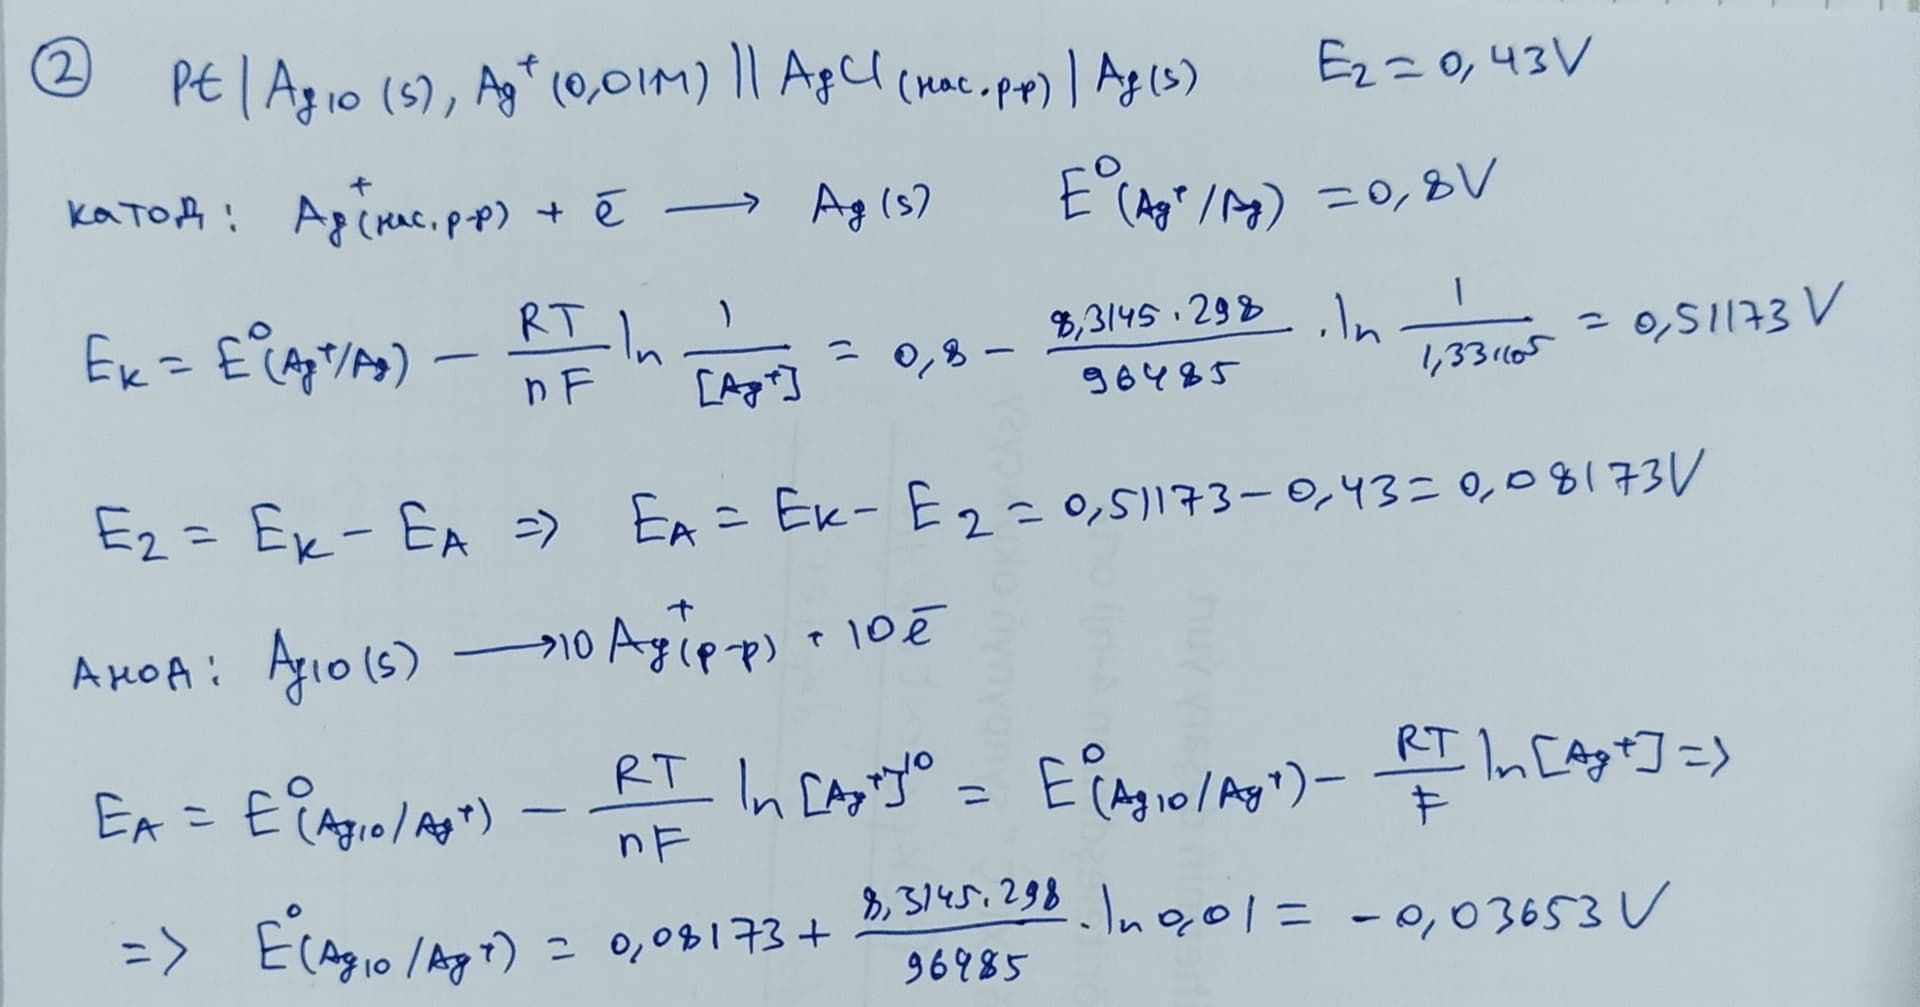 ② Pt | Ag10 (s), Ag⁺ (0,01M) || AgCl (нас.р-р) | Ag(s) E₂ = 0,43V
катод: Ag⁺(нас.р-р) + ē → Ag (s) E⁰(Ag⁺/Ag) = 0,8V
Eк = E⁰(Ag⁺/Ag) − RT/nF ln 1/[Ag⁺] = 0,8 − 8,3145·298/96485 · ln 1/1,33·10⁻⁵ = 0,51173 V
E₂ = Eк − EА => EА = Eк − E₂ = 0,51173 − 0,43 = 0,08173V
Анод: Ag10(s) → 10 Ag⁺(р-р) + 10ē
EА = E⁰(Ag10/Ag⁺) − RT/nF ln [Ag⁺]¹⁰ = E⁰(Ag10/Ag⁺) − RT/F ln [Ag⁺] =>
=> E⁰(Ag10/Ag⁺) = 0,08173 + 8,3145·298/96485 · ln 0,01 = −0,03653 V